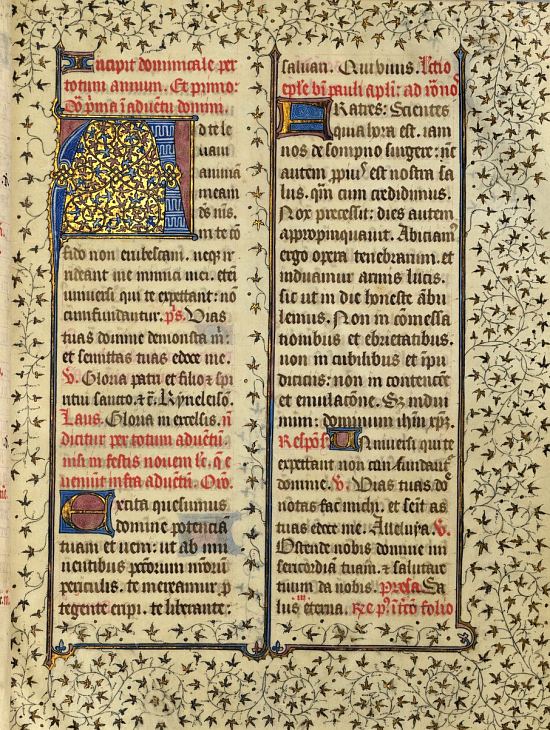 Incipit dominicale per
totum annum. Et primo:
Dn̄ pͥma ī adūetu domini.
Ad te le
uaui
animā
meam
dēs m̄s.
in te cō
fido non erubescam. neqꝫ ir
rideant me inimici mei. etēi
uniuersi qui te expectant: nō
cōnfundantur. p̄s. Uias
tuas domine demonstra m̄:
et semitas tuas edoce me.
V. Gloria patri et filio ⁊ spi
ritui sancto. ⁊ c̄. Kyrieleisō.
Laus. Gloria in excelsis. nō
dicitur per totum aduētū.
nisi in festis nouem lc̄. q̄ e
ueniūt infra aduētū. Orō.
Excita quesumus
domine potenciā
tuam et ueni: ut ab imi
nentibus pccōrum nr̄orū
periculis. te mereamur p
tegente eripi. te liberante:
saluari. Qui uiuis. Lectio
ep̄le bī pauli apl̄i: ad rōnos
Fratres: Scientes
quia hora est. iam
nos de sompno surgere: nūc
autem ꝓpius est nostra sa
lus. qm̄ cum credidimus.
Nox precessit: dies autem
appropinquauit. Abiciamꝰ
ergo opera tenebrarum. et
induamur armis lucis.
sic ut in die honeste ābu
lemus. Non in comessa
tionibus et ebrietatibus.
non in cubilibus et īpu
diciciis: non in contencōe
et emulacōne. Sꝫ indui
mini: dominum ihm̄ xp̄m.
Respōs. Uniuersi qui te
expectant non confundantꝰ
domine. V. Uias tuas dō
notas fac michi. et semitas
tuas edoce me. Alleluya. V.
Ostende nobis domine mi
sericordiā tuam. ⁊ salutare
tuum da nobis. Prosa Sa
lus eterna. Re pͥ in c̄to folio